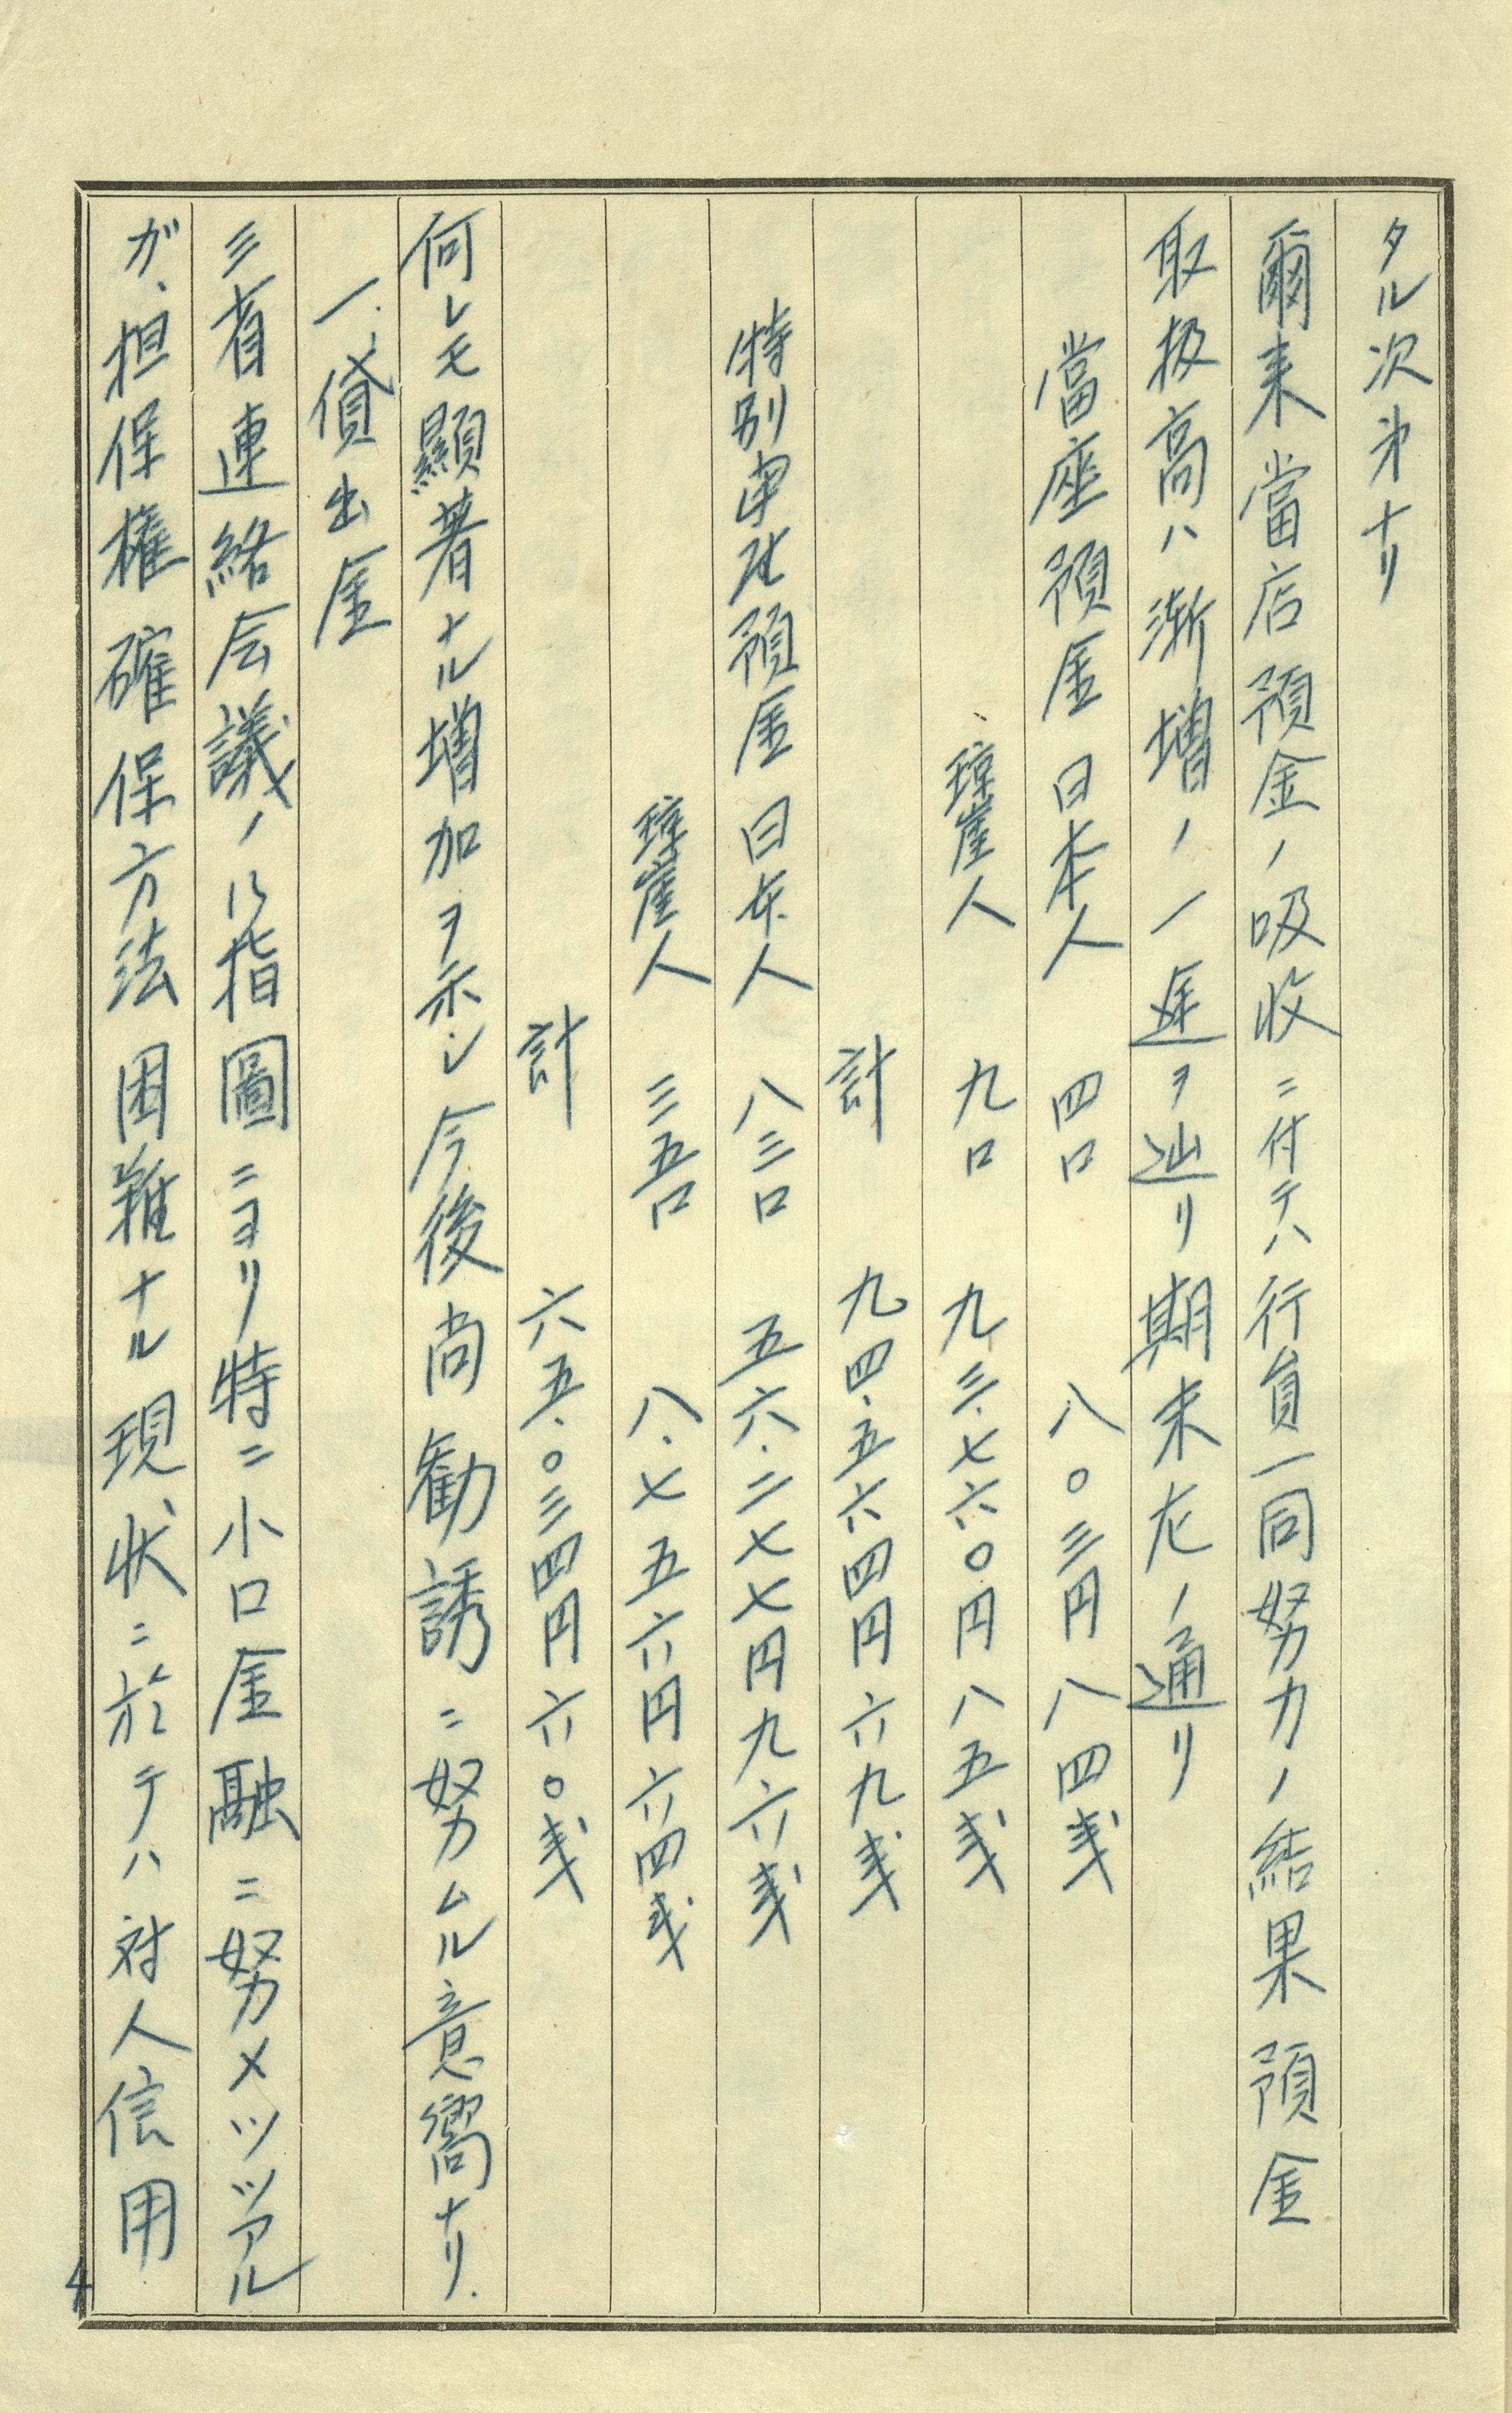 タル次第ナリ
爾来當店預金ノ吸收ニ付テハ行員一同努力ノ結果預金
取扱高ハ漸増ノ一途ヲ辿リ期末左ノ通リ
當座預金 日本人 四口 八〇三円八四戋
瓊崖人 九口 九三.七六〇円八五戋
計 九四.五六四円六九戋
特別当座預金 日本人 八三口 五六.二七七円九六戋
瓊崖人 三五口 八.七五六円六四戋
計 六五.〇三四円六〇戋
何レモ顯著ナル増加ヲ示シ今後尚勧誘ニ努ムル意嚮ナリ.
一、貸出金
三省連絡会議ノ御指圖ニヨリ特ニ小口金融ニ努メツツアル
ガ、担保権確保方法困難ナル現状ニ於テハ対人信用
4